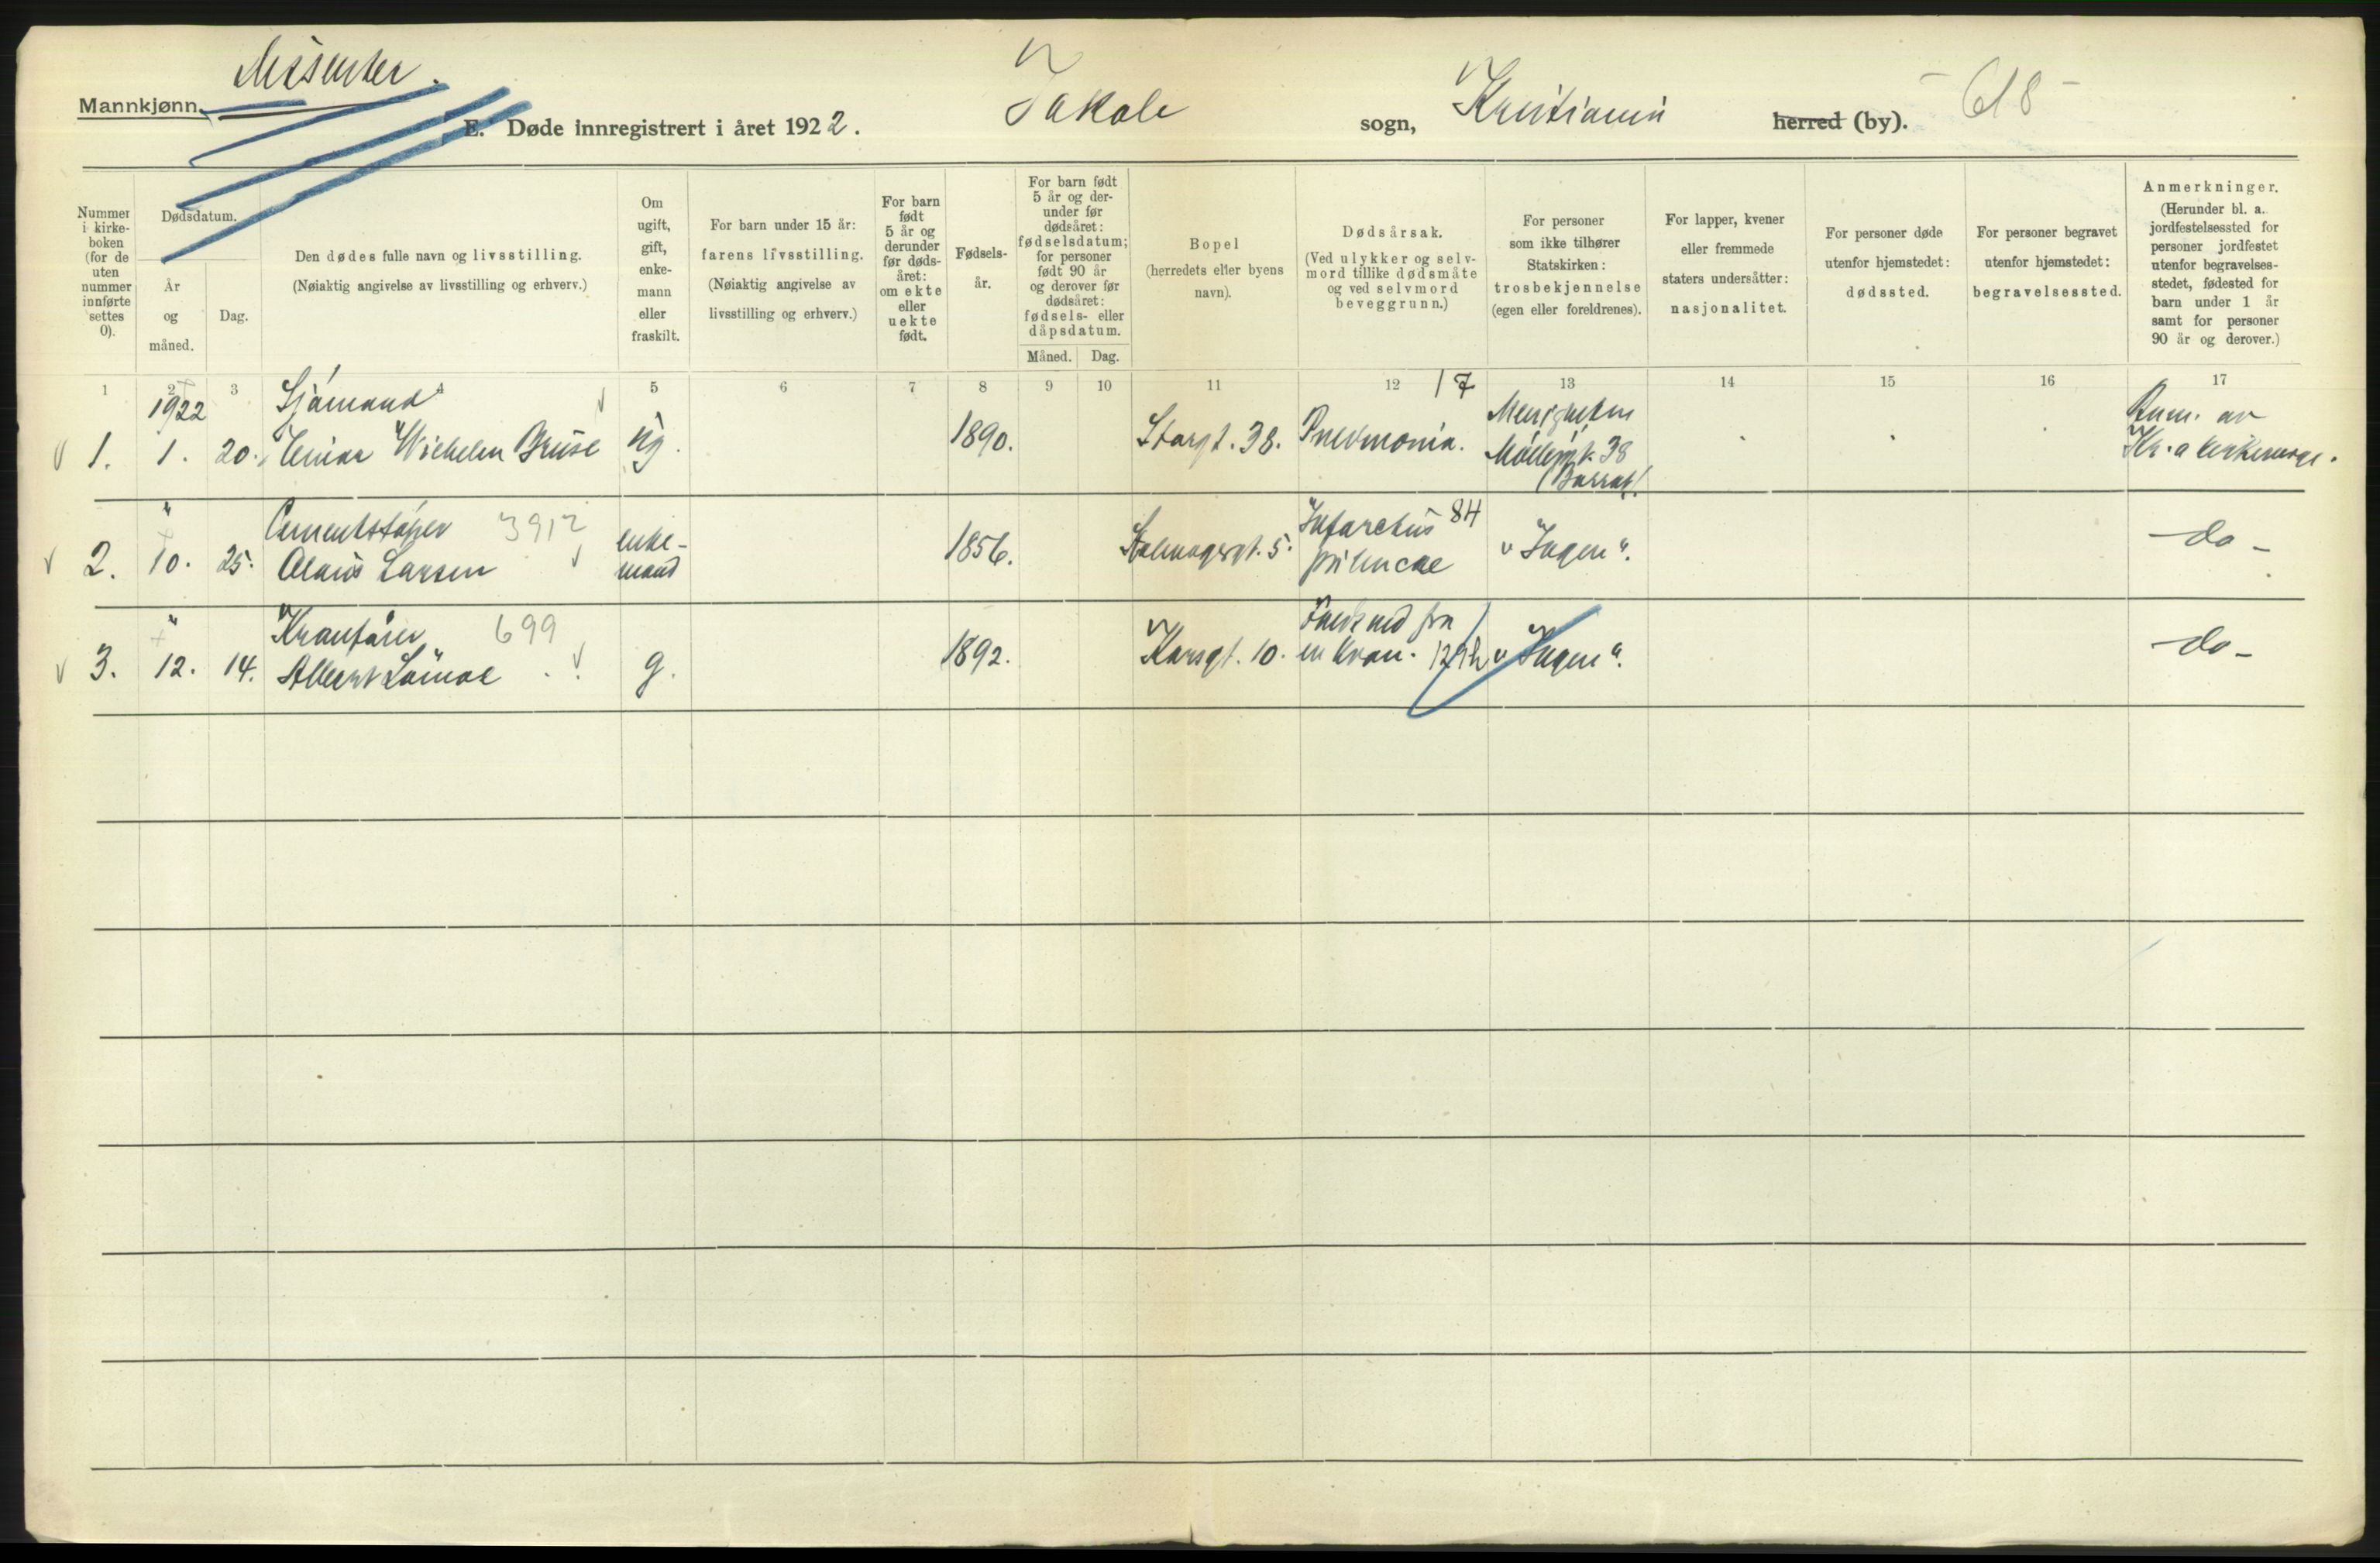 Dissenter.
Mannkjønn.
E. Døde innregistrert i året 1922.
Jakob sogn, Kristiania herred (by).
- 618 -
Nummer i kirke-
boken
(for de
uten
nummer
innførte
settes
0).
Dødsdatum.
År
og
måned.
Dag.
Den dødes fulle navn og livsstilling.
(Nøiaktig angivelse av livsstilling og erhverv.)
Om
ugift,
gift,
enke-
mann
eller
fraskilt.
For barn under 15 år:
farens livsstilling.
(Nøiaktig angivelse av
livsstilling og erhverv.)
For barn
født
5 år og
derunder
før døds-
året:
om ekte
eller
uekte
født.
Fødsels-
år.
For barn født
5 år og der-
under før
dødsåret:
fødselsdatum;
for personer
født 90 år
og derover før
dødsåret:
fødsels- eller
dåpsdatum.
Måned. Dag.
Bopel
(herredets eller byens
navn).
Dødsårsak.
(Ved ulykker og selv-
mord tillike dødsmåte
og ved selvmord
beveggrunn.)
For personer
som ikke tilhører
Statskirken:
trosbekjennelse
(egen eller foreldrenes).
For lapper, kvener
eller fremmede
staters undersåtter:
nasjonalitet.
For personer døde
utenfor hjemstedet:
dødssted.
For personer begravet
utenfor hjemstedet:
begravelsessted.
Anmerkninger.
(Herunder bl. a.
jordfestelsessted for
personer jordfestet
utenfor begravelses-
stedet, fødested for
barn under 1 år
samt for personer
90 år og derover.)
1 2 3 4 5 6 7 8 9 10 11 12 13 14 15 16 17
1922 Sjømand 17 Menigheten Anm. av
1. 1. 20. Einar Wilhelm Bruse ug. 1890. Storgt. 38. Pnevmonia. Møllergt. 38 Kr.a kirkeverge.
(Barrat).
" Cementstøper 3912 enke- Infarctus 84
2. 10. 25. Olaus Larsen mand 1856. 5. "Ingen". - do -
" Kranfører 699 Faldt ned fra
3. 12. 14. Albert g. 1892. Korsgt. 10. en kran. "Ingen". - do -